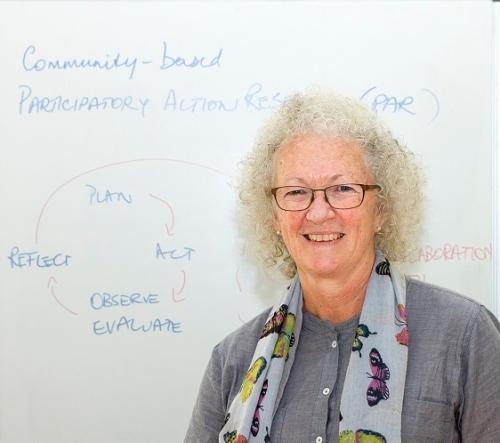 Community-based
PARTICIPATORY ACTION RES (PAR)
PLAN
REFLECT
ACT
OBSERVE
EVALUATE
LABORATION